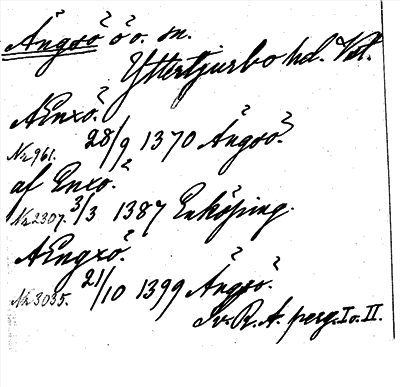 Ängsö ö o. sn.
Yttertjurbo hd. Vst.
AEnxö.
Nr 961. 28/9 1370 Ängsö.
af Enxö.
Nr 2307. 3/3 1387 Enköping.
AEngxö.
Nr 3035. 21/10 1399 Ängsö.
Sv. R. A. perg. I o. II.